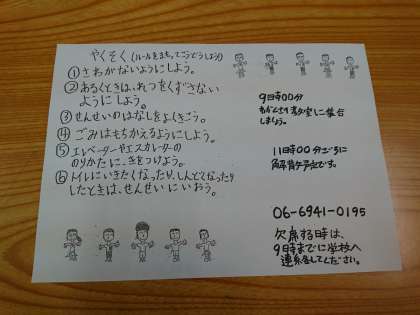 やくそく (ルールをまもってこうどうしよう)
① さわがないようにしよう。
② あるくときは、れつをくずさない
ようにしよう。
③ せんせいのはなしをよくきこう。
④ ごみはもちかえるようにしよう。
⑤ エレベーターやエスカレーターの
のりかたに、きをつけよう。
⑥ トイレにいきたくなったり、しんどくなったり
したときは、せんせいにいおう。
9時00分
教室に集合
しましょう。
11時00分ごろに
解散予定です。
06-6941-0195
欠席する時は、
9時までに学校へ
連絡してください。